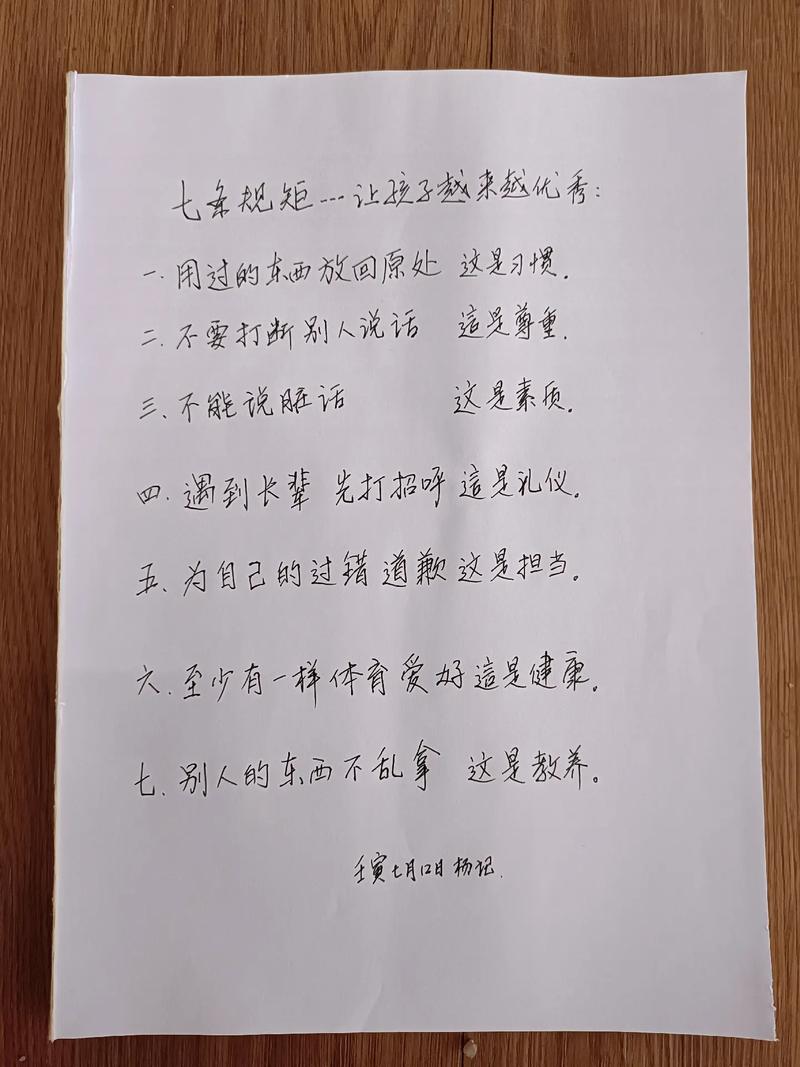 七条规矩---让孩子越来越优秀：
一.用过的东西放回原处 这是习惯.
二.不要打断别人说话 這是尊重.
三.不能说脏话 这是素质.
四.遇到长辈 先打招呼 這是礼仪.
五.为自己的过错道歉 这是担当。
六.至少有一样体育爱好 這是健康。
七.别人的东西不乱拿 这是教养。
壬寅七月12日杨记.